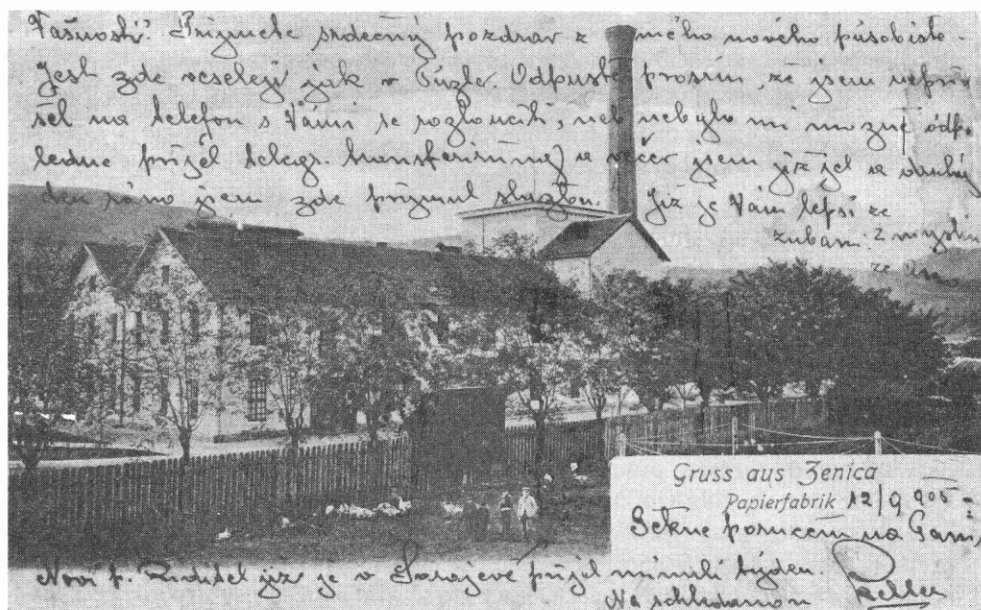 Vášnosti! Přijmete srdečný pozdrav z mého nového působiště.
Jest zde veseleji jak v Tuzle. Odpusťte prosím, že jsem nepři
šel na telefon s Vámi se rozloučiti, neb nebylo mi možné odp.
ledne přijel telegr. a večer jsem již jel a druhý
den ráno jsem zde přijmul službu. Již je Vám lepší ze
zubam. z myslím
že ano
Gruss aus Zenica
Papierfabrik 12/9 905
poručení na Paní,
Noví p. Ředitel již je v Sarajevě přijel minulí týden.
Na schledanou